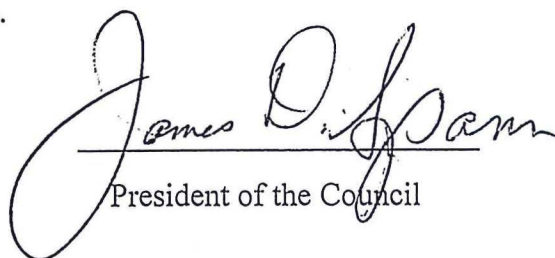 James D. Spann
President of the Council